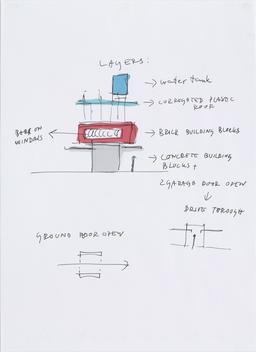 LAYERS:
water tank
CORRUGATED PLASTIC
ROOF
BARS ON
WINDOWS
BRICK BUILDING BLOCKS
CONCRETE BUILDING
BLOCKS +
2 GARAGE DOOR OPEN
DRIVE THROUGH
GROUND DOOR OPEN